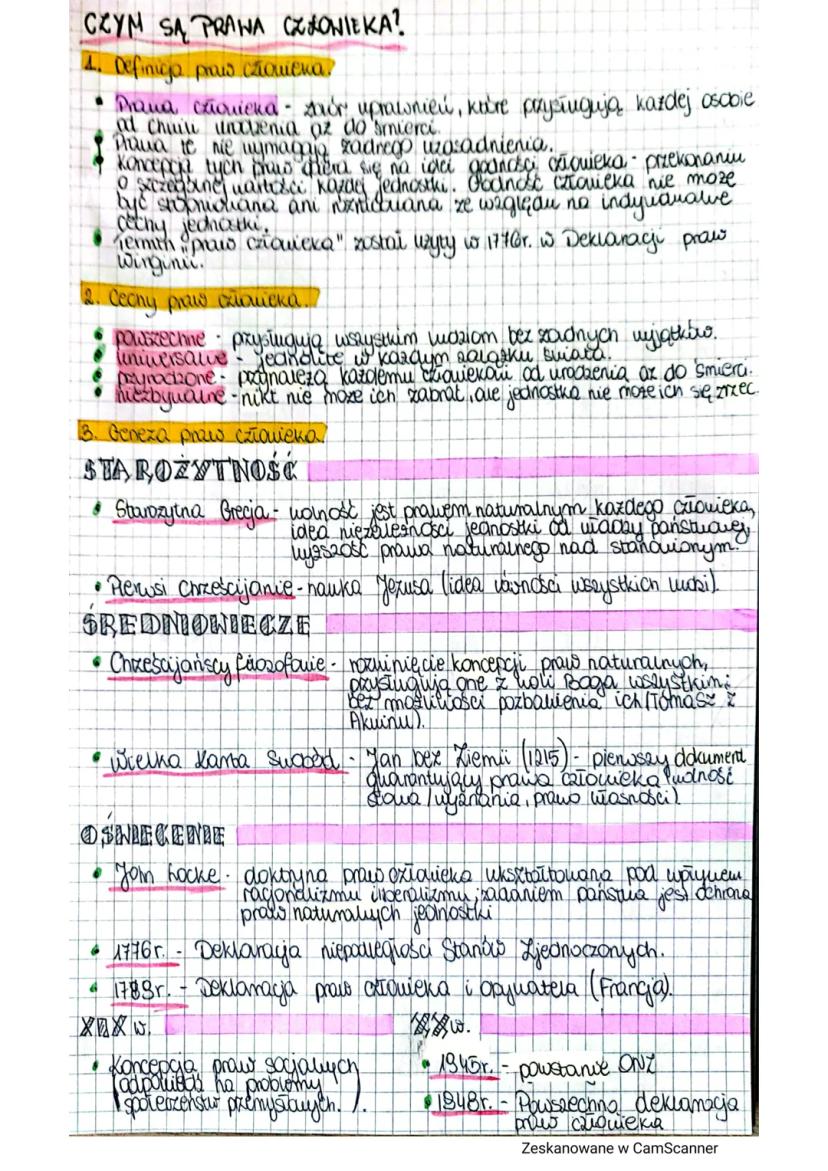 CZYM SĄ PRAWA CZŁOWIEKA?
1. Definicja praw człowieka.
• Prawa człowieka - zbiór uprawnień, które przysługują każdej osobie
od chwili urodzenia aż do śmierci.
• Prawa te nie wymagają żadnego uzasadnienia.
• Koncepcja tych praw opiera się na idei godności człowieka - przekonaniu
o szczególnej wartości każdej jednostki. Godność człowieka nie może
być stopniowana ani różnicowana ze względu na indywidualne
cechy jednostki.
• Termin "prawa człowieka" został użyty w 1776r. w Deklaracji praw
Wirginii.
2. Cechy praw człowieka.
• powszechne - przysługują wszystkim ludziom bez żadnych wyjątków.
• uniwersalne - jednolite w każdym zakątku świata.
• przyrodzone - przynależą każdemu człowiekowi od urodzenia aż do śmierci.
• niezbywalne - nikt nie może ich zabrać, ale jednostka nie może ich się zrzec.
3. Geneza praw człowieka
STAROŻYTNOŚĆ
• Starożytna Grecja - wolność jest prawem naturalnym każdego człowieka,
idea niezależności jednostki od władzy państwowej,
wyższość prawa naturalnego nad stanowionym.
• Pierwsi chrześcijanie - nauka Jezusa (idea równości wszystkich ludzi).
ŚREDNIOWIECZE
• Chrześcijańscy filozofowie - rozwinięcie koncepcji praw naturalnych,
przysługują one z woli Boga wszystkim i
bez możliwości pozbawienia ich (Tomasz z
Akwinu).
• Wielka Karta Swobód - Jan bez Ziemii (1215) - pierwszy dokument
gwarantujący prawa człowieka (wolność
słowa / wyznania, prawo własności)
OŚWIECENIE
• John Locke - doktryna praw człowieka ukształtowana pod wpływem
racjonalizmu i liberalizmu, zadaniem państwa jest ochrona
praw naturalnych jednostki
• 1776r. - Deklaracja niepodległości Stanów Zjednoczonych.
• 1789r. - Deklaracja praw człowieka i obywatela (Francja).
XIX w.
• Koncepcja praw socjalnych
(odpowiedź na problemy
społeczeństw przemysłowych.).
XX w.
• 1945r. - powstanie ONZ
• 1948r. - Powszechna deklaracja
praw człowieka
Zeskanowane w CamScanner